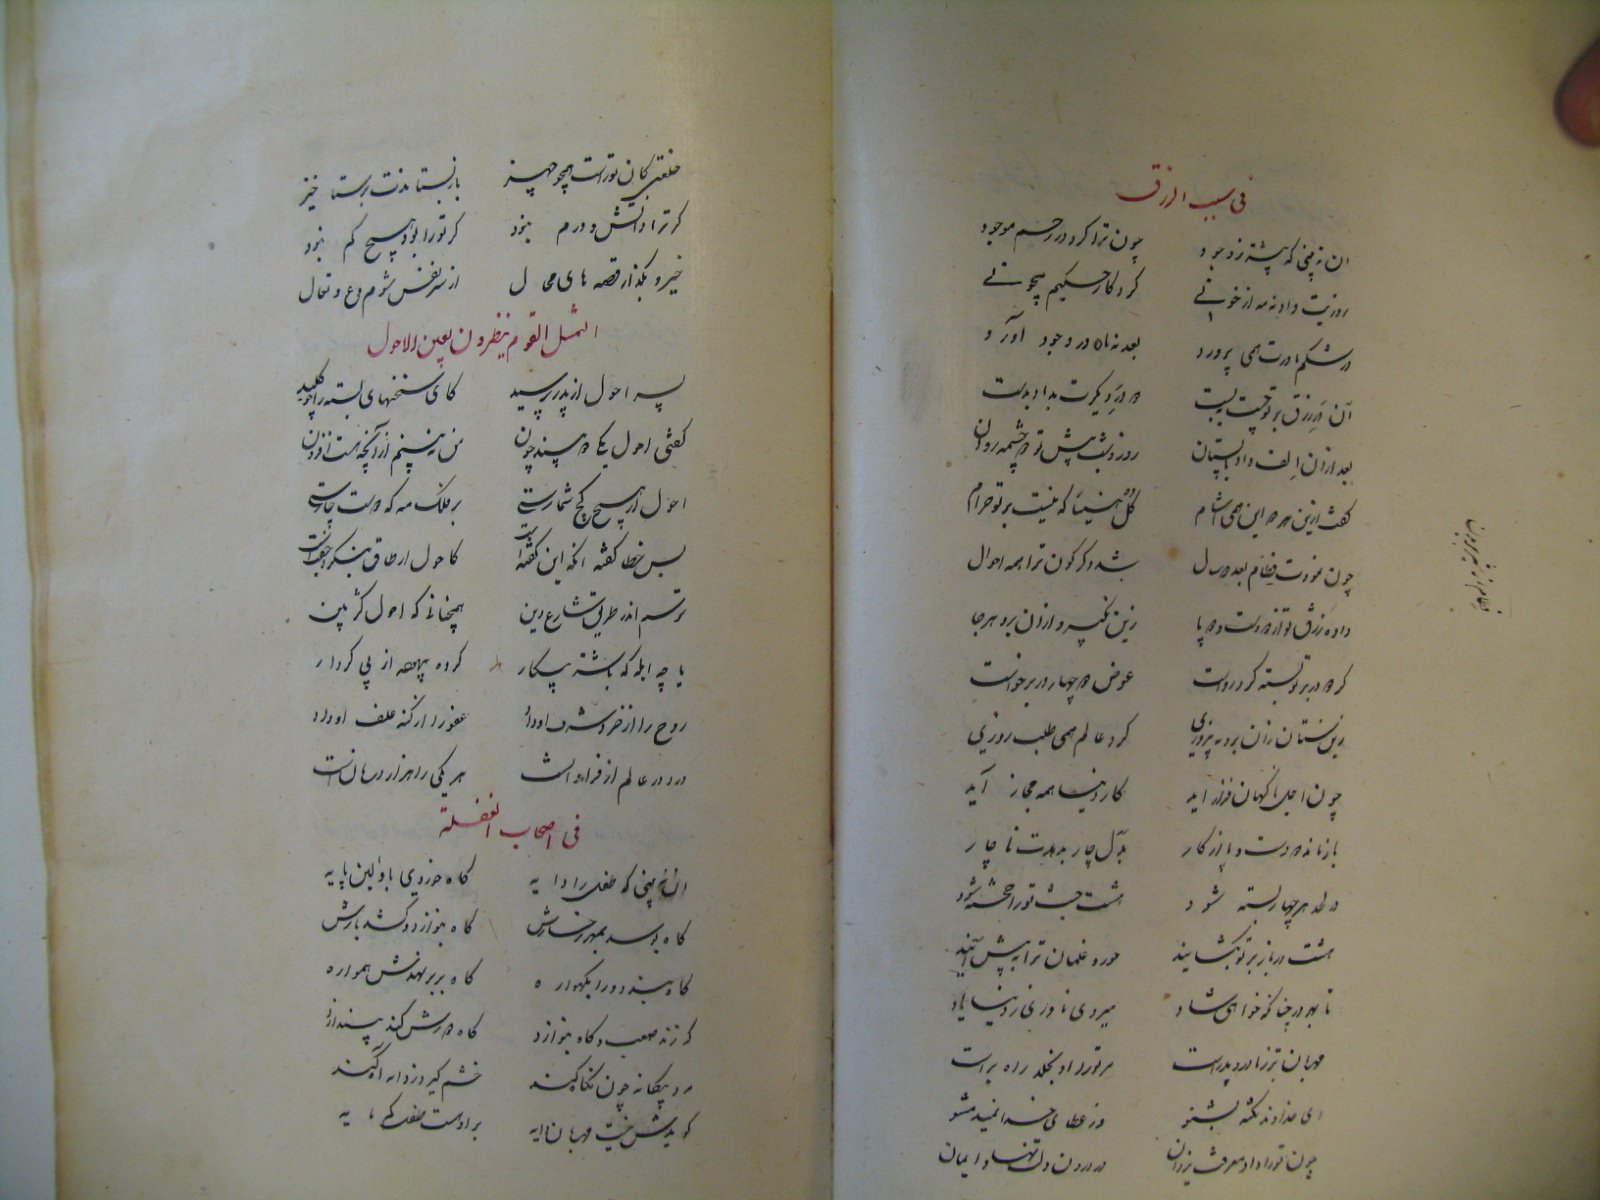 فی سبب الرزق
آن نه بینی که پیشتر ز وجود چون ترا کرد در رحم موجود
روزیت داد نه مه از خونی کردکار حکیم بیچونی
در شکم مادرت همی پرورد بعد نه ماه در وجود آورد
آن در رزق بر تو چست ببست دو در دیکرت بداد بدست
بعد ازان الف داد با پستان روز و شب پیش تو دو چشمه روان
کفت ازین هر دو این همی آشام کل هنیئا که نیست بر تو حرام
چون نمودت فطام بعد دو سال شد دکرکون ترا همه احوال
داد رزق تو از دو دست و دو پا زین بکیر و ازان برو هر جا
کر دو در بر تو بسته کرد رواست عوض دو چهار در برخواست
زین ستان زان برو به پیروزی کرد عالم همی طلب روزی
چون اجل ناکهان فراز آید کار دنیا همه مجاز آید
باز ماند دو دست و پا از کار بدل چار بدهدت ناچار
در لحد هر چهار بسته شود هشت جنت تورا خجسته شود
هشت در باز بر تو بکشایند حور و غلمان ترا به پیش آیند
تا بهر در چنانکه خواهی شاد میروی ناوری ز دنیا یاد
مهربان تر ز مادر و پدر است مر تورا او بخلد راه بر است
ای خداوند نکته بشنو وز عطای خدا نمید مشو
چون تورا داد معرفت یزدان در درون دلت نهاد ایمان
خلعتی کان تورا است همچو جهیز باز نستاندت برستاخیز
کر ترا دانش و درم نبود کر تورا بود هیچ کم نبود
خیز و بکذار قصه های محال از سر نفس شوم دع و تعال
التمثیل القوم ینظرون بعین الاحول
پسر احول از پدر پرسید کای سخنهای بسته را چو کلید
کفتی احول یکی دو بیند چون من نبینم از آنچه هست افزون
احول ار هیچ کج شمارستی بر فلک مه که دو است چارستی
پس خطا کفت آنکه این کفته است کاحول ار طاق بنکرد جفت است
ترسم اندر طریق شارع دین همچنانی که احول کژ بین
یا چو ابله که با شتر پیکار کرده بیهده از پی کردار
روح را از خرد شرف او داد عفو را از کنه علف او داد
درد در عالم از فراوانست هر یکی را هزار درمانست
فی اصحاب الغفلة
آن نه بینی که طفل را دایه کاه خوردی باولین پایه
کاه بوسد بمهر رخسارش کاه بنوازد و کشد بارش
کاه بندد ورا بکهواره کاه بر بر نهدش همواره
که زند صعب و کاه بنوازد کاه دورش کند بیندازد
مرد بیکانه چون نکاه کند خشم کیرد ز دایه آه کند
کویدش نیست مهربان دایه بر او هست طفل کم مایه